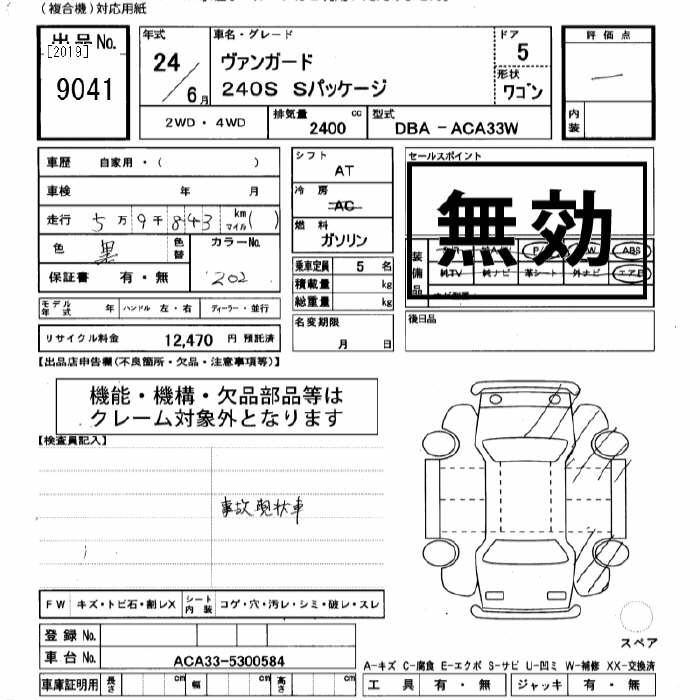 (複合機)対応用紙
出品No.
[2019]
9041
年式
24
6月
車名・グレード
ヴァンガード
240S Sパッケージ
ドア
5
形状
ワゴン
評価点
内装
2WD・4WD
排気量
2400 cc
型式
DBA-ACA33W
車歴 自家用・( )
車検 年 月
走行 5万9千843 km マイル( )
色 黒 色替
カラーNo.
202
保証書 有・無
モデル年式 年 ハンドル 左・右 ディーラー・並行
リサイクル料金 12,470 円 預託済
シフト
AT
冷房
AC
燃料
ガソリン
乗車定員 5 名
積載量 kg
総重量 kg
名変期限
月 日
セールスポイント
無効
装備品
ABS
純TV 純ナビ 革シート 外ナビ エアB
後日品
【出品店申告欄(不良箇所・欠品・注意事項等)】
機能・機構・欠品部品等は
クレーム対象外となります
【検査員記入】
事故現状車
FW キズ・トビ石・割レX シート内装 コゲ・穴・汚レ・シミ・破レ・スレ
登録No.
車台No. ACA33-5300584
車庫証明用 長さ cm 幅 cm 高さ cm
スペア
A-キズ C-腐食 E-エクボ S-サビ U-凹ミ W-補修 XX-交換済
工具 有・無 ジャッキ 有・無